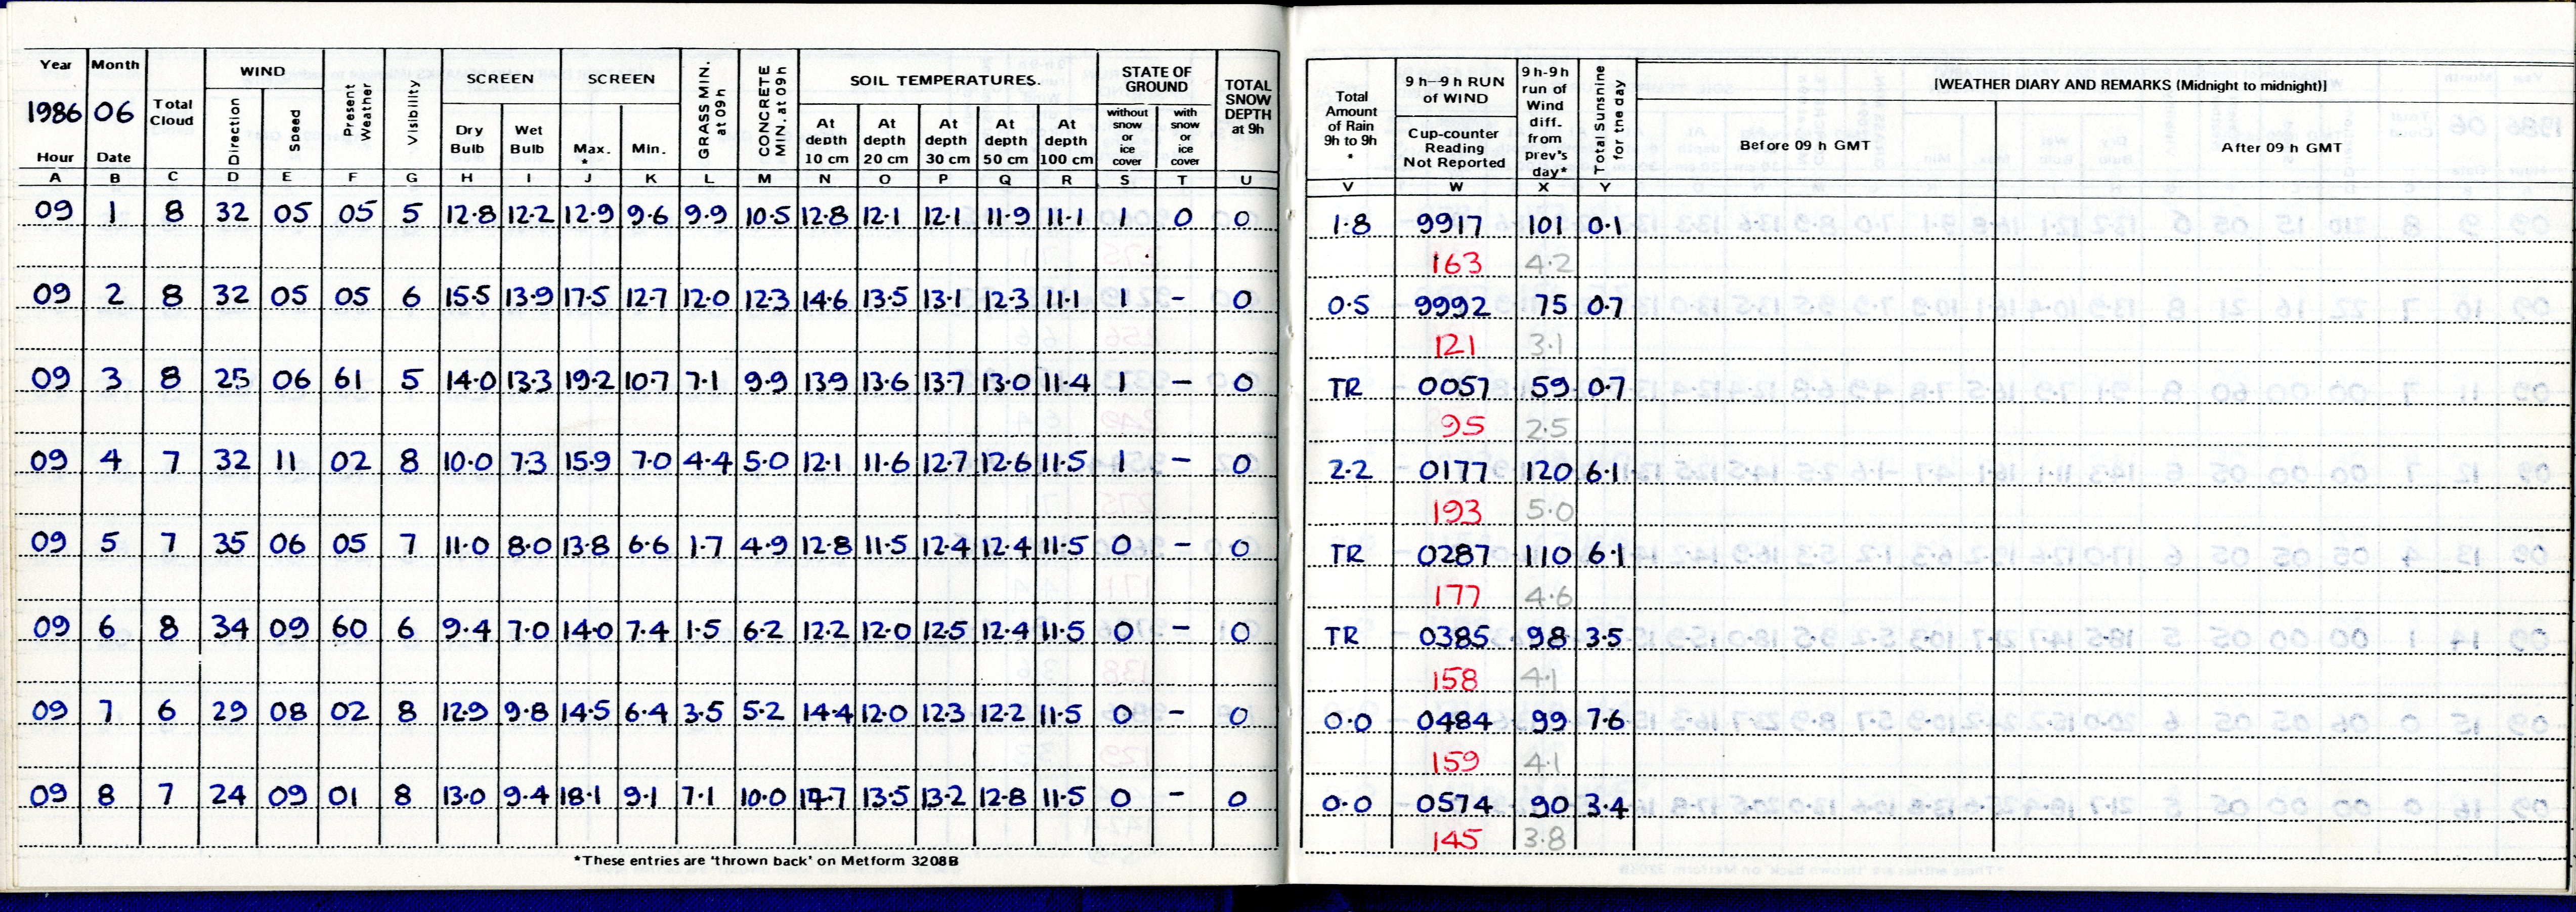 Year Month WIND SCREEN SCREEN SOIL TEMPERATURES. STATE OF GROUND TOTAL SNOW DEPTH at 9h
1986 06 Total Cloud Direction Speed Present Weather Visibility Dry Bulb Wet Bulb Max. * Min. GRASS MIN. at 09h CONCRETE MIN. at 09h At depth 10 cm At depth 20 cm At depth 30 cm At depth 50 cm At depth 100 cm without snow or ice cover with snow or ice cover
Hour Date
A B C D E F G H I J K L M N O P Q R S T U
09 1 8 32 05 05 5 12.8 12.2 12.9 9.6 9.9 10.5 12.8 12.1 12.1 11.9 11.1 1 0 0
09 2 8 32 05 05 6 15.5 13.9 17.5 12.7 12.0 12.3 14.6 13.5 13.1 12.3 11.1 1 - 0
09 3 8 25 06 61 5 14.0 13.3 19.2 10.7 7.1 9.9 13.9 13.6 13.7 13.0 11.4 1 - 0
09 4 7 32 11 02 8 10.0 7.3 15.9 7.0 4.4 5.0 12.1 11.6 12.7 12.6 11.5 1 - 0
09 5 7 35 06 05 7 11.0 8.0 13.8 6.6 1.7 4.9 12.8 11.5 12.4 12.4 11.5 0 - 0
09 6 8 34 09 60 6 9.4 7.0 14.0 7.4 1.5 6.2 12.2 12.0 12.5 12.4 11.5 0 - 0
09 7 6 29 08 02 8 12.9 9.8 14.5 6.4 3.5 5.2 14.4 12.0 12.3 12.2 11.5 0 - 0
09 8 7 24 09 01 8 13.0 9.4 18.1 9.1 7.1 10.0 14.7 13.5 13.2 12.8 11.5 0 - 0
*These entries are 'thrown back' on Metform 3208B
Total Amount of Rain 9h to 9h * 9 h—9 h RUN of WIND Cup-counter Reading Not Reported 9 h-9 h run of Wind diff. from prev's day* Total Sunshine for the day [WEATHER DIARY AND REMARKS (Midnight to midnight)]
Before 09 h GMT After 09 h GMT
V W X Y
1.8 9917 101 0.1
163 4.2
0.5 9992 75 0.7
121 3.1
TR 0057 59 0.7
95 2.5
2.2 0177 120 6.1
193 5.0
TR 0287 110 6.1
177 4.6
TR 0385 98 3.5
158 4.1
0.0 0484 99 7.6
159 4.1
0.0 0574 90 3.4
145 3.8